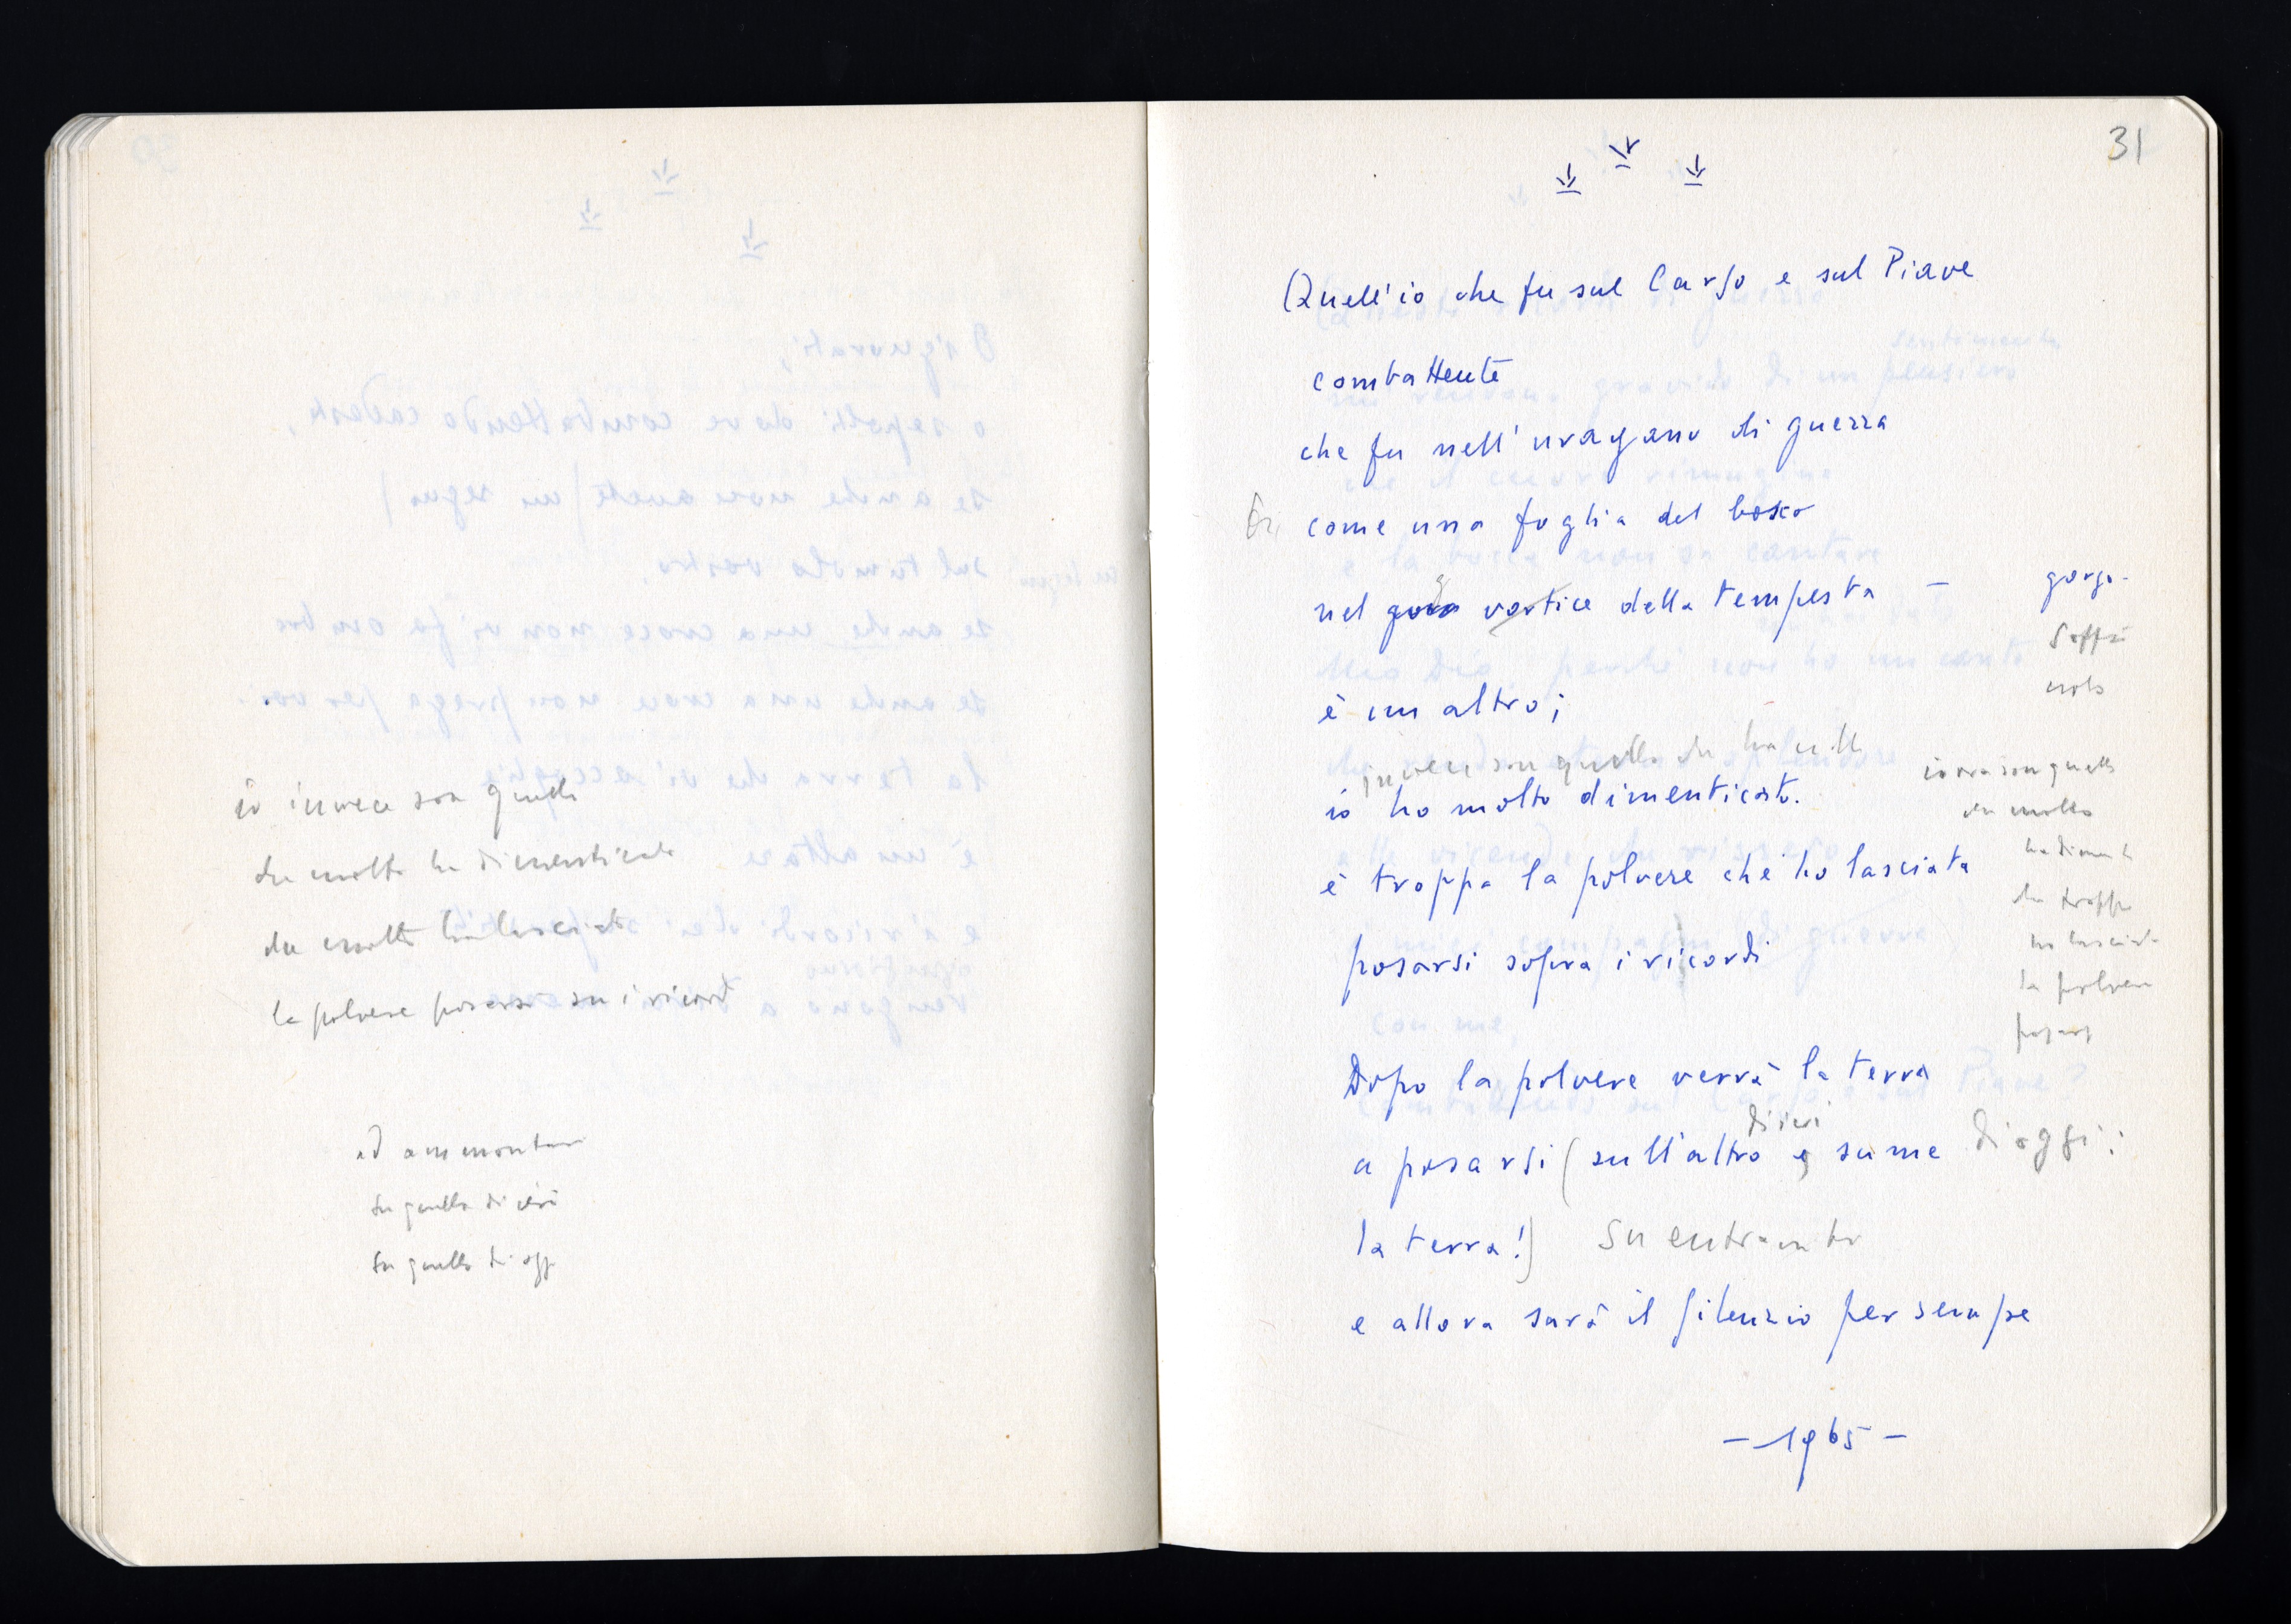 io invece son quello
che molto ha dimenticato
che molto ha lasciato
la polvere posarsi su i ricordi
ad ammontar
su quello di ieri
su quello di oggi
31
Quell'io che fu sul Carso e sul Piave
combattente
che fu nell'uragano di guerra
come una foglia del bosco
nel vortice della tempesta –
gorgo
è un altro;
invece son quello che ha molto
io ho molto dimenticato.
è troppa la polvere che ho lasciata
posarsi sopra i ricordi
io ora son quello
che molto
ha diment
che troppa
ha lasciato
la polvere
posarsi
Dopo la polvere verrà la terra
di ieri
a posarsi (sull'altro e su me di oggi:
la terra!) su entrambi
e allora sarà il silenzio per sempre
– 1965 –